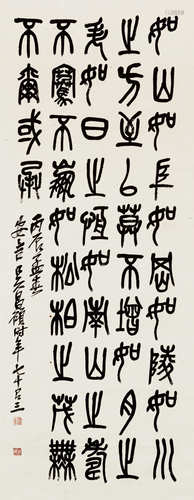 如山如阜如岡如陵如川
之方至以莫不增如月之
恆如日之升如南山之壽
不騫不崩如松柏之茂無
不爾或承
丙辰孟春
安吉吳昌碩時年七十又三